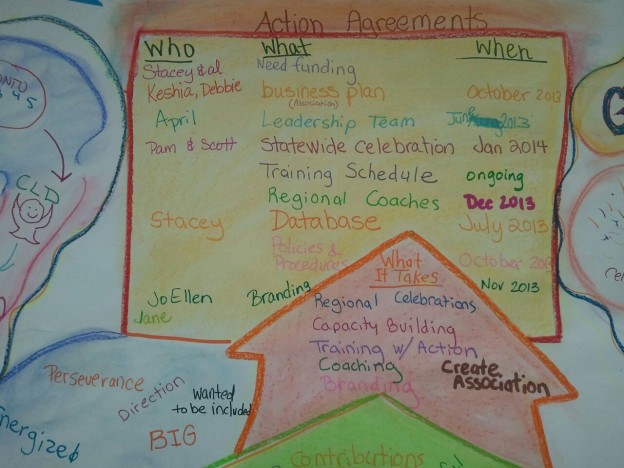 Action Agreements
Who What When
Stacey & al Need funding
Keshia, Debbie business plan October 2013
(Association)
April Leadership Team June 2013
Pam & Scott Statewide Celebration Jan 2014
Training Schedule ongoing
Regional Coaches Dec 2013
Stacey Database July 2013
Policies & Procedures October
JoEllen Branding Nov 2013
Jane
What
It Takes
Regional Celebrations
Capacity Building
Training w/ Action
Coaching
Branding
Create
Association
CLD
Perseverance
Direction
Wanted
to be included
Energized
BIG
Contributions